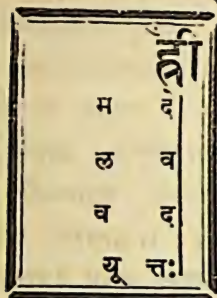 ह्री
म दे
ल व
व द
यू त्तः